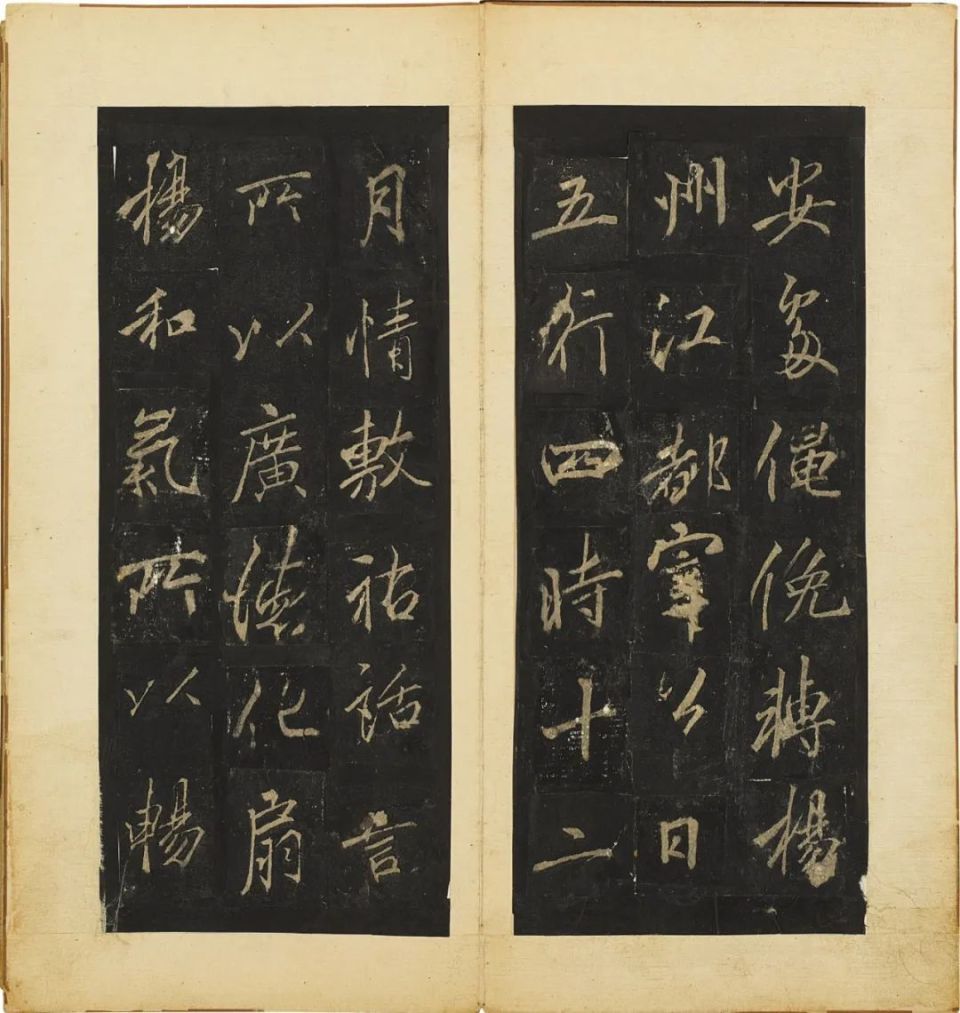 安處僶俛轉楊
州江都宰公曰
五行四時十二
月情敷祜話言
所以廣德化扇
揚和氣所以暢